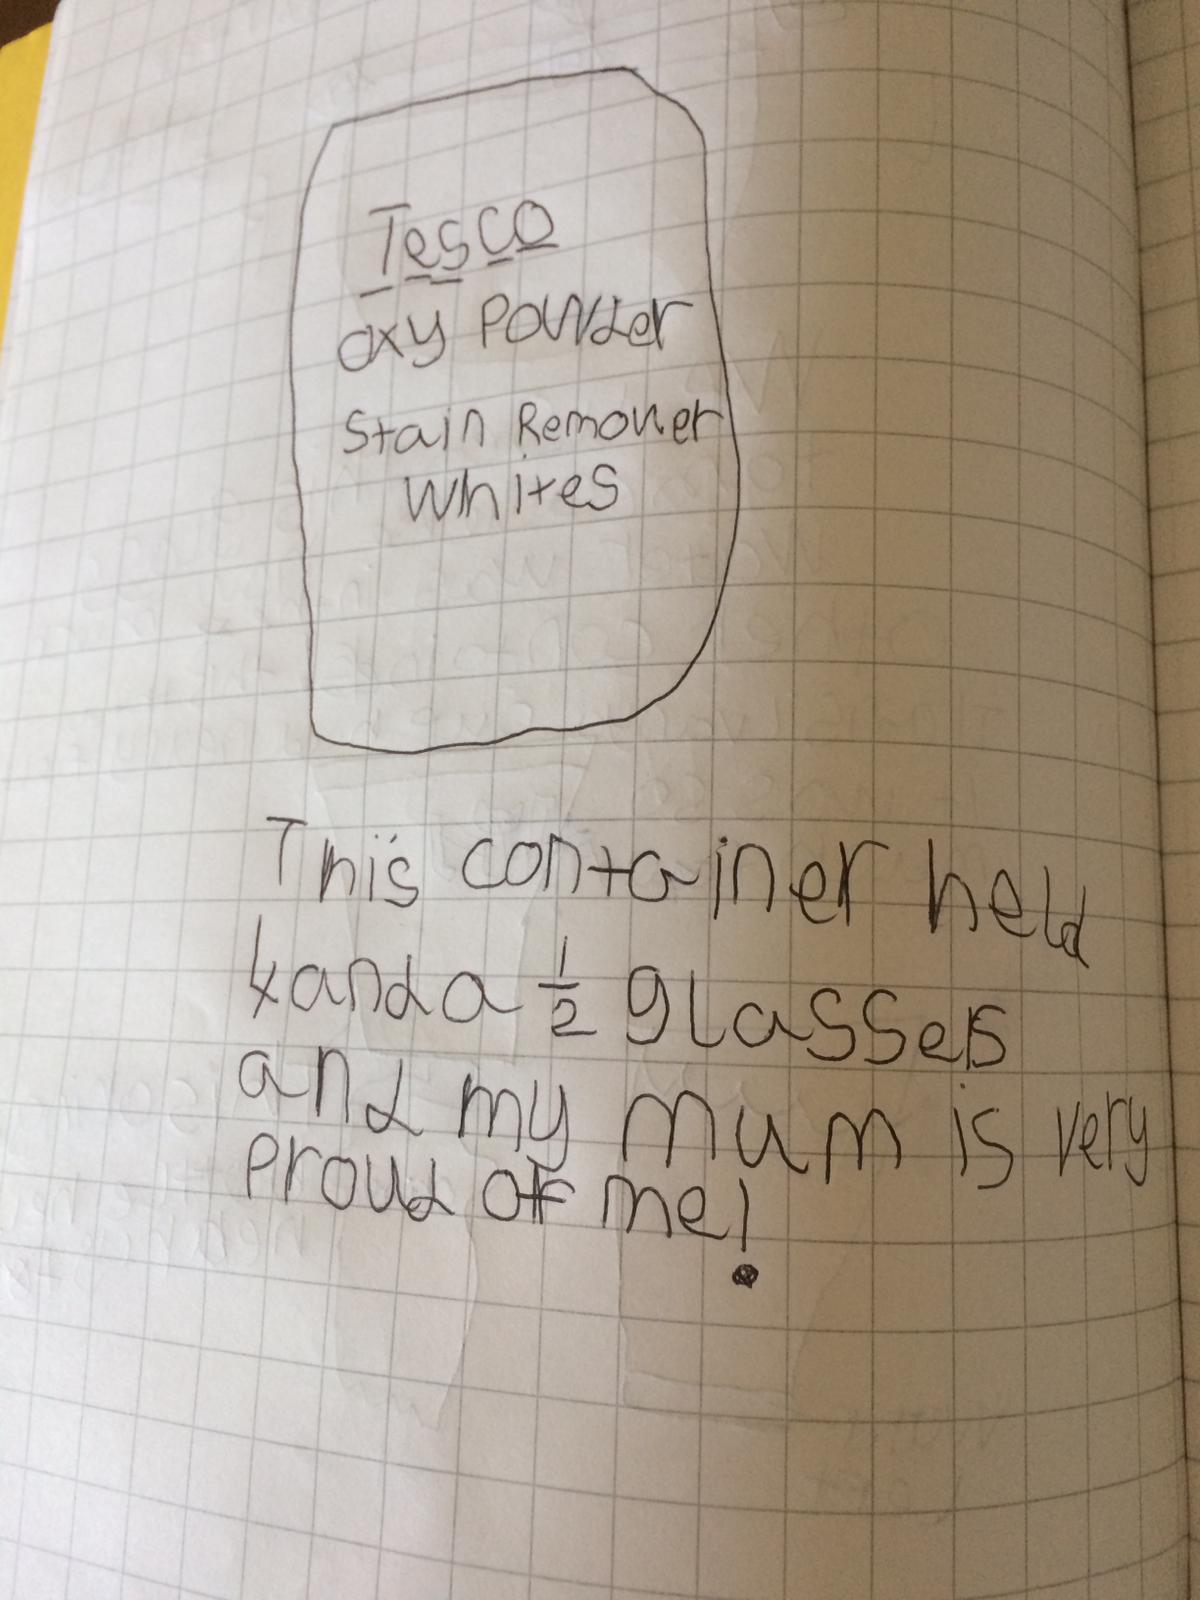 Tesco
oxy Powder
Stain Remover
Whites
This container held
4 and a 1/2 glasses
and my mum is very
Proud of me!